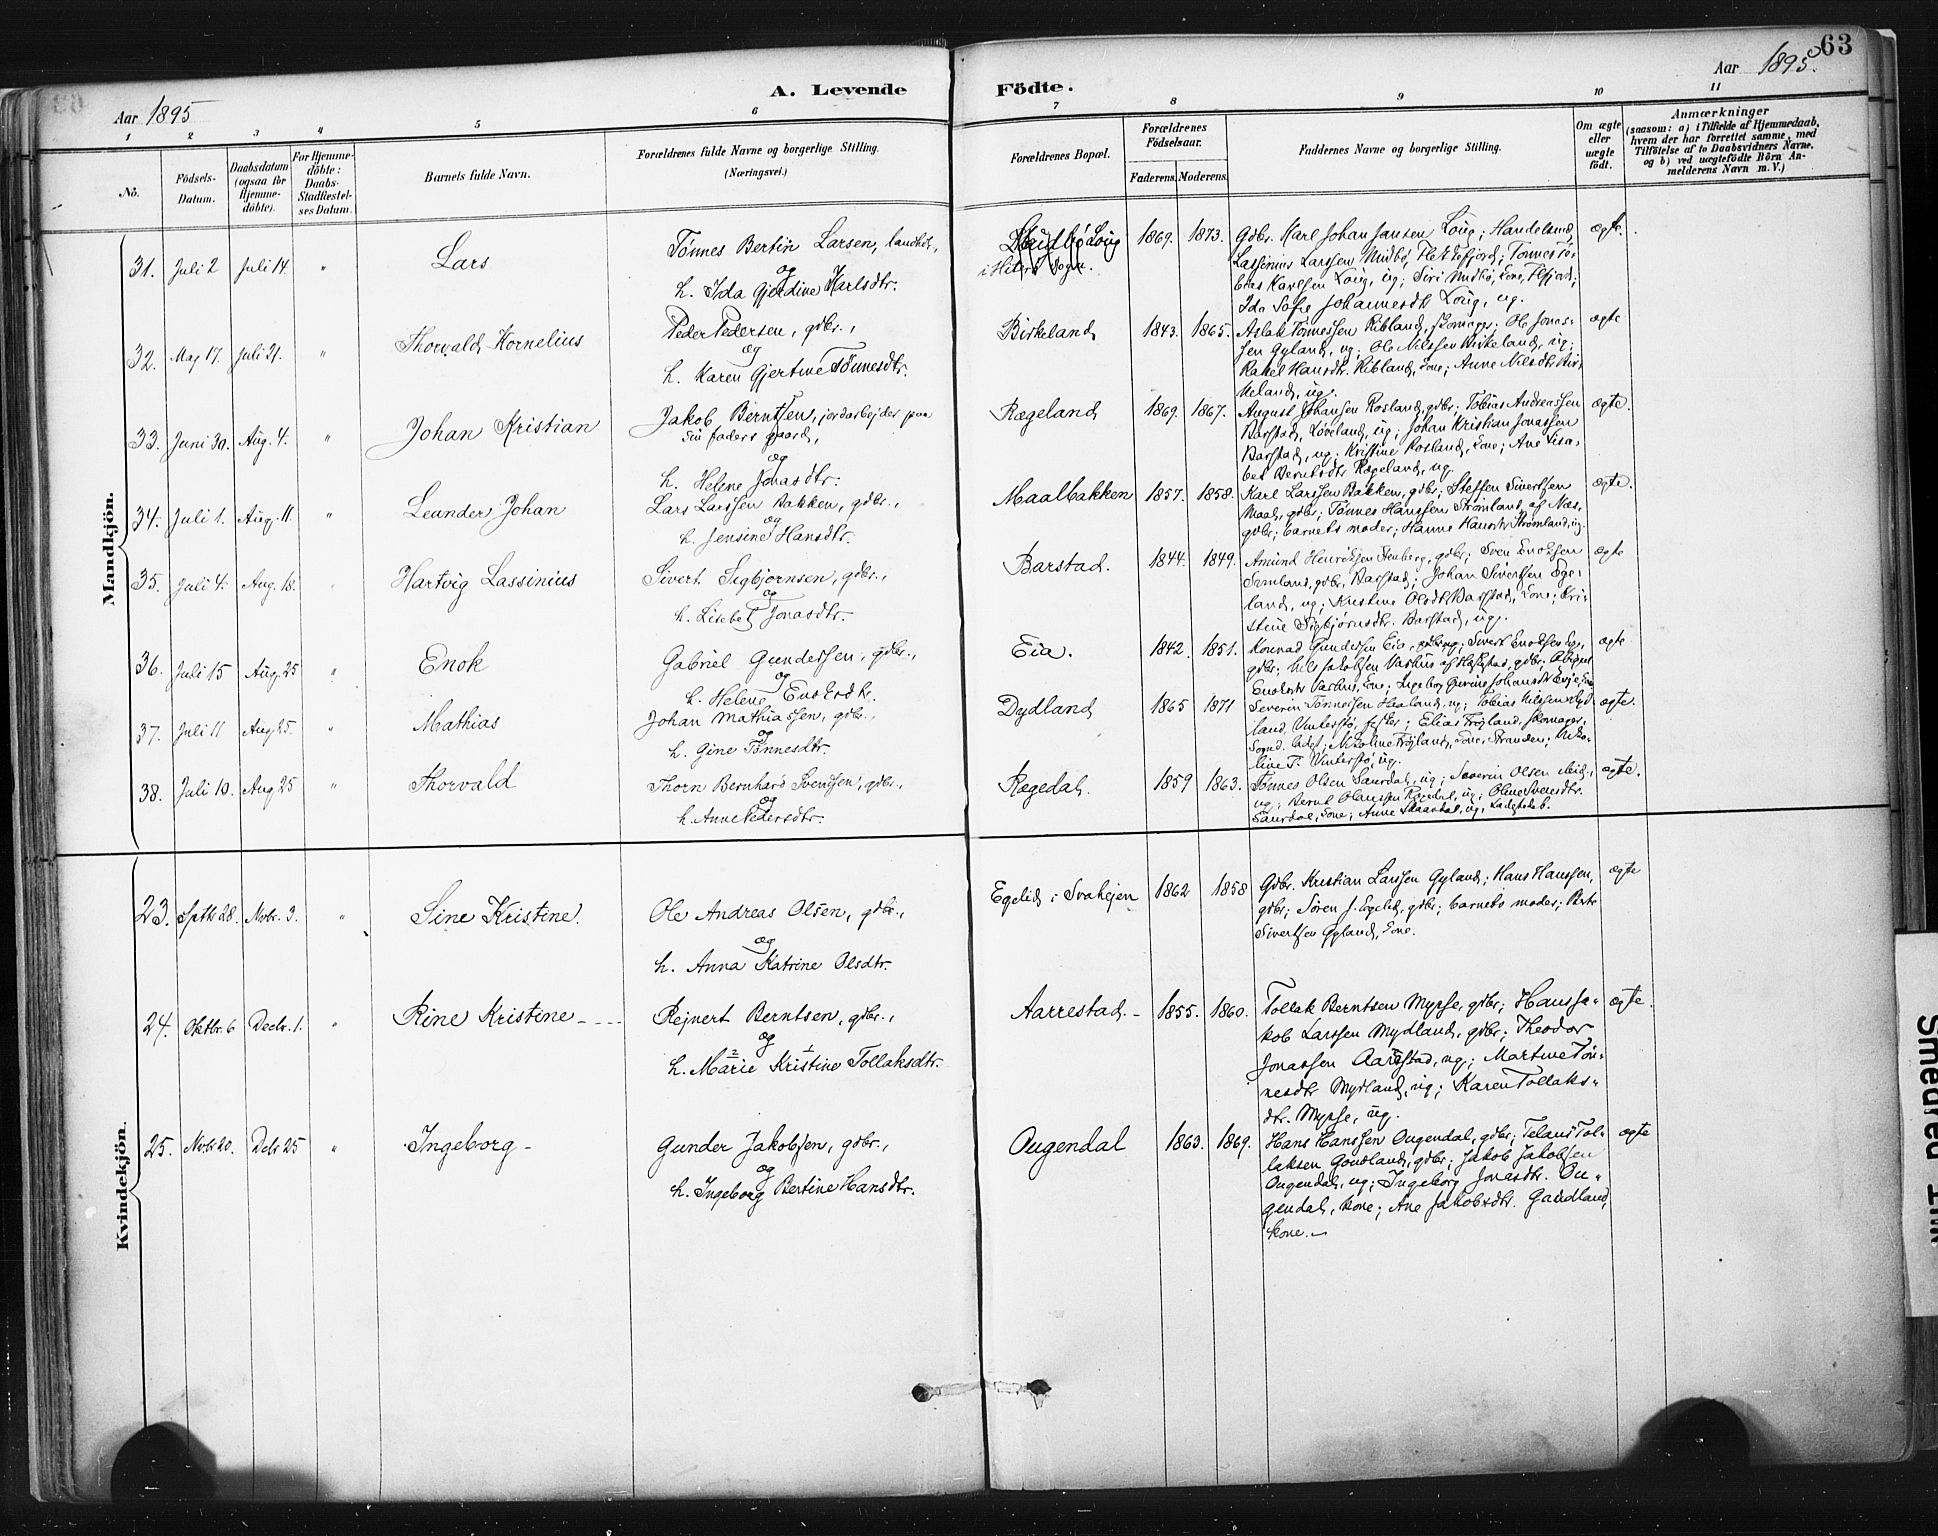 63
Aar 1895
A. Levende Födte.
Aar 1895.
1 2 3 4 5 6 7 8 9 10 11
No.
Födsels-Datum.
Daabsdatum (ogsaa for Hjemme-döbte).
For Hjemme-döbte: Daabs-Stadfæstel-ses Datum.
Barnets fulde Navn.
Forældrenes fulde Navne og borgerlige Stilling.
(Næringsvei.)
Forældrenes Bopæl.
Forældrenes Födselsaar.
Faderens. Moderens.
Faddernes Navne og borgerlige Stilling.
Om ægte eller uægte födt.
Anmærkninger
(saasom: a) i Tilfælde af Hjemmedaab,
hvem der har forrettet samme, med
Tilföielse af to Daabsvidners Navne.
og b) ved uægtefödte Börn An-
melderens Navn m. V.)
Mandkjön.
31. Juli 2 Juli 14. " Lars
Tönnes Bertin Larsen,
og
h. Ida Gjerdine Karlsdtr.
Loug
i Hiterö Sogn.
1869. 1873.
Gdbr. Karl Johan Jansen Loug; Handelsmd
Lassinius Larssen Midbö, Flekkefjord; Tönnes To-
bias Karlsen Loug, ug; Siri Midbö, Kone, Flfjord;
Ida Sofie Johannesdt Loug, ug.
ægte.
32. Maj 17. Juli 21. " Thorvald Kornelius
Peder Pedersen, gdbr.,
og
h. Karen Gjertine Tönnesdtr.
Birkeland
1843. 1865.
Aslak Tönnessen Ribland, skomager; Ole Jonas-
sen Gyland, ug; Ole Nilssen Birkeland, ug;
Rakel Hansdtr. Ribland, Kone; Anne Nilsdtr Bir-
keland, ug.
ægte
33. Juni 30. Aug. 4. " Johan Kristian
Jakob Berntsen, jordarbejder paa
sin faders gaard,
og
h. Helene Jonasdtr.
Rægeland
1869. 1867.
August Johansen Rosland, gdbr; Tobias Andreassen
Barstad, Löveland, ug; Johan Kristian Jonassen
Barstad, ug; Kristine Rosland, Kone; Ane Lisa-
bet Berntsdtr Rægeland, ug.
ægte.
34. Juli 1. Aug. 11. " Leander Johan
Lars Larssen Bakken, gdbr.,
og
h. Jensine Hansdtr.
Maalbakken
1857. 1858.
Karl Larssen Bakken, gdbr; Steffen Sivertsen
Maal, gdbr; Tönnes Hanssen Strömland af Næs,
gdbr; barnets moder; Hanne Hansdtr Strömland, ug.
ægte.
35. Juli 4. Aug. 18. " Hartvig Lassinius
Sivert Sigbjörnsen, gdbr.,
og
h. Lisebet Jonasdtr.
Barstad.
1844. 1849.
Amund Henriksen Stenberg, gdbr; Sven Enoksen
Sirnland, gdbr, Barstad; Johan Sivertsen Ege-
land, ug; Kristine Olsdt Barstad, Kone; Kri-
stine Sigbjörnsdtr. Barstad, ug;
ægte
36. Juli 15 Aug. 25 " Enok
Gabriel Gundersen, gdbr.,
og
h. Helene Enoksdtr.
Eia.
1842. 1851.
Konrad Gunderssen Eia, ug; Sivert Enoksen
gdbr; Nils Jakobsen Varhus af Hæstad, gdbr; Abigael
Enoksdtr Varhus, Kone; Ingeborg Gurine Johansdt
ægte
37. Juli 11 Aug. 25. " Mathias
Johan Mathiassen, gdbr.,
og
h. Gine Tönnesdtr.
Dydland
1865 1871
Severin Tönnessen Haaland, ug; Tobias Nilssen
land, Vinterstö, Elias Fröjland, skomager,
Sogndal, Ladst; Nikoline Fröjland, Kone, Stranden; Niko-
line T. Vinterstö, ug.
ægte.
38. Juli 10. Aug 25 " Thorvald
Thorn Bernhard Svendsen, gdbr.,
og
h. Anne Pedersdtr.
Rægedal.
1859 1863.
Tönnes Olsen Saurdal, ug; Severin Olsen
ug; Bernt Olaussen Rægedal, ug; Oline Svensdtr.
Saurdal, Kone; Anne Skaardal, ug, Ladstedet.
ægte.
Kvindekjön.
23. Sptbr 28. Nvbr. 3. " Sine Kristine.
Ole Andreas Olsen, gdbr.,
og
h. Anna Katrine Olsdtr.
Egelid i Svahejen
1862 1858
Gdbr. Kristian Larssen Gyland; Hans Hanssen,
gdbr; Sören J. Egelid, gdbr; barnets moder; Berte
Sivertsen Gyland, Kone.
ægte
24. Oktbr. 6 Decbr. 1. " Rine Kristine
Rejnert Berntsen, gdbr.,
og
2 1
h. Marie Kristine Tollaksdtr.
Aarrestad.
1855. 1860.
Tollak Berntsen Myrse, gdbr; Hans Ja-
kob Larssen Mydland, gdbr; Theodor
Jonassen Aarrestad, ug; Martine Tön-
nesdtr Mydland, ug; Karen Tollaks-
dtr. Myrse, ug.
ægte.
25. Nvbr 20. Dcbr 25 " Ingeborg
Gunder Jakobsen, gdbr.,
og
h. Ingeborg Bertine Hansdtr.
Ougendal
1863. 1869.
Hans Hanssen Ougendal, gdbr; Telaus Tol-
laksen Goudland, gdbr; Jakob Jakobsen
Ougendal, ug; Ingeborg Jonasdtr. Ou-
gendal, kone; Ane Jakobsdtr. Gaudland,
kone.
ægte